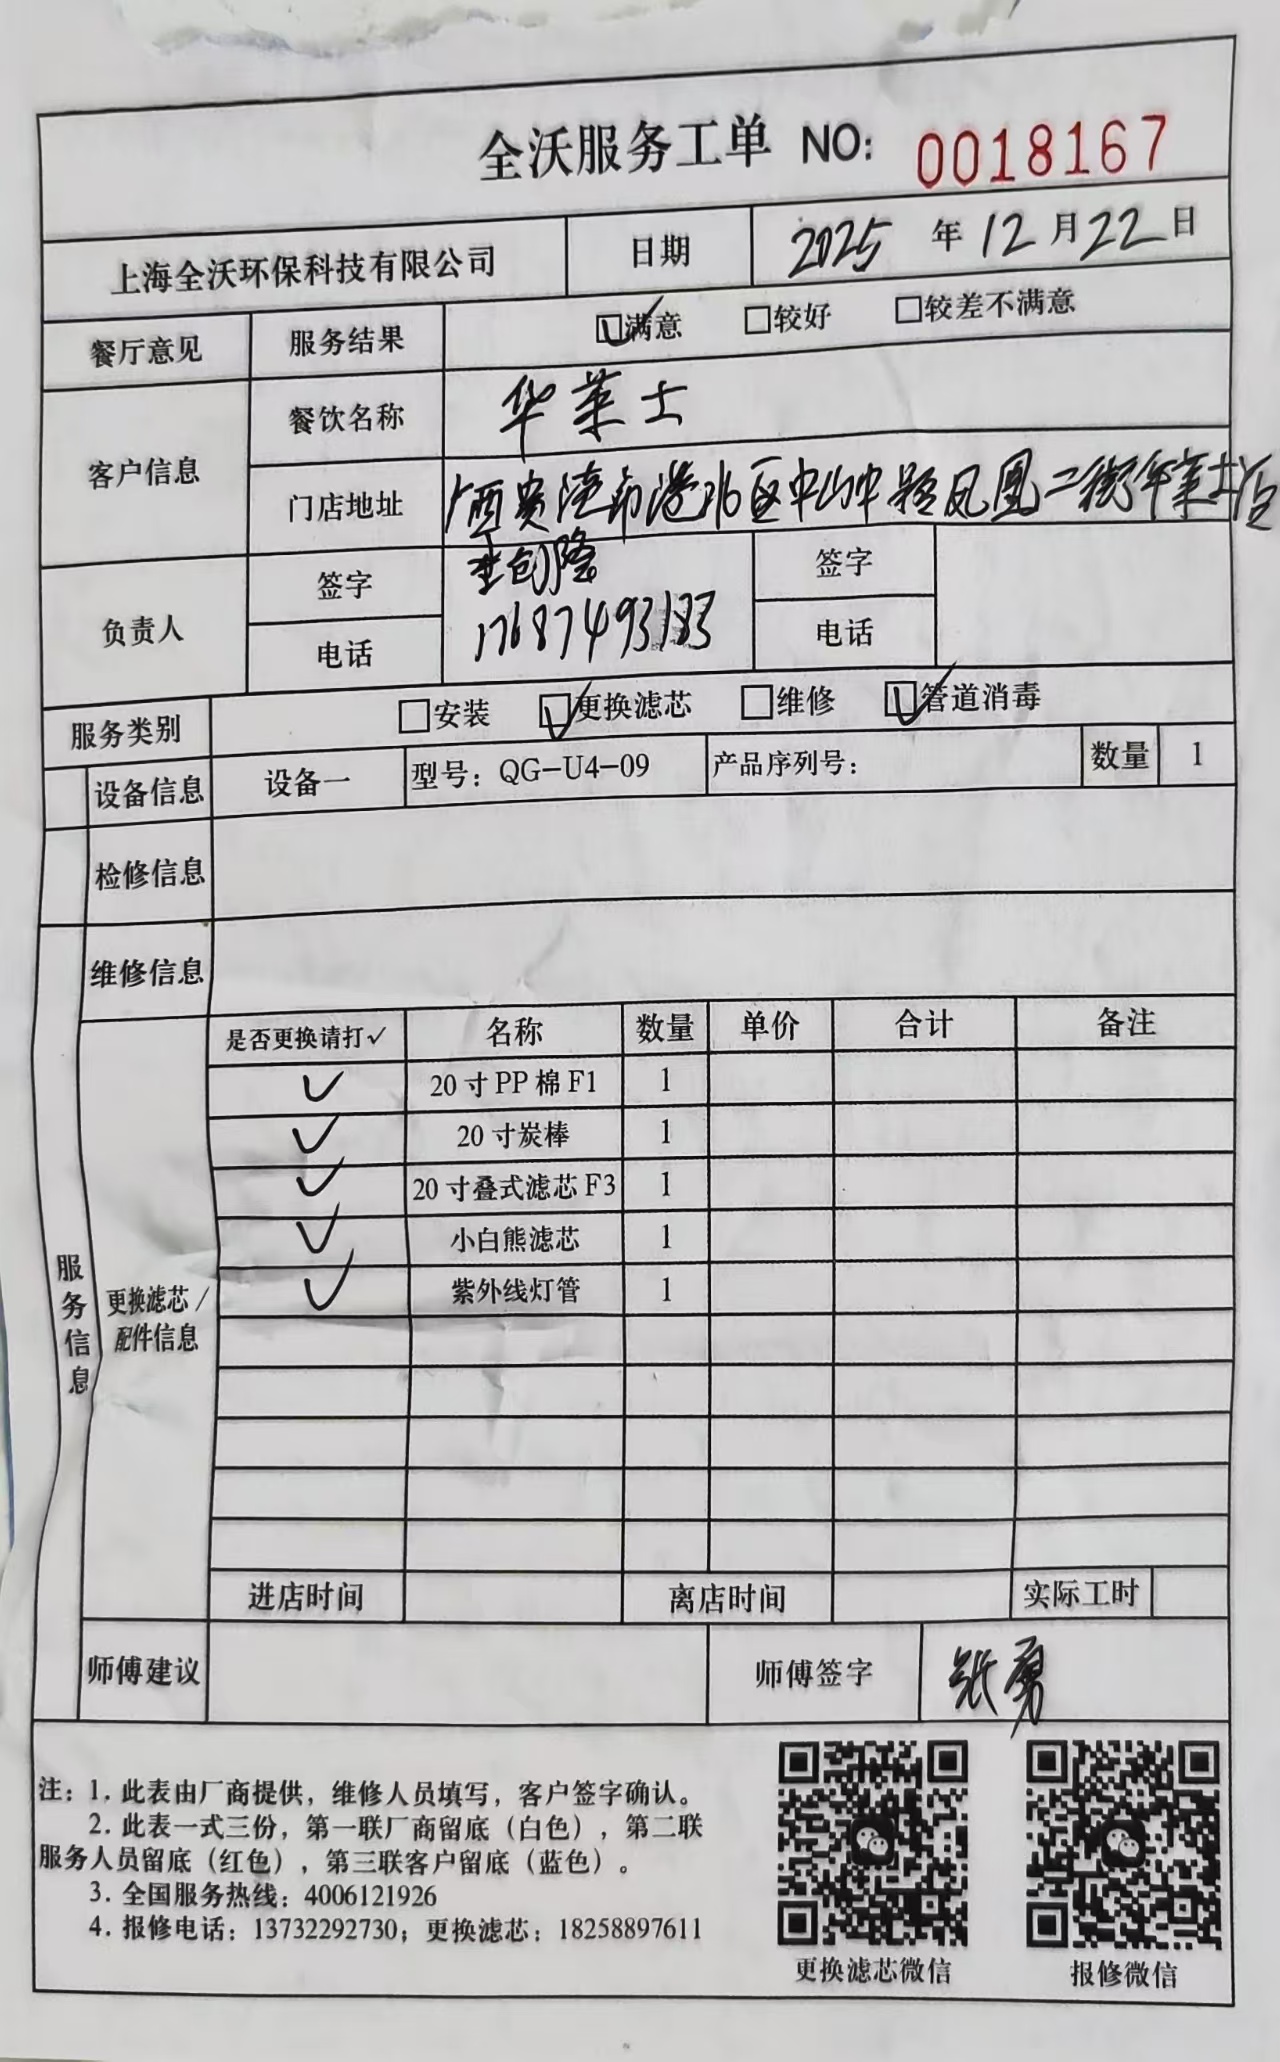 全沃服务工单 NO: 0018167
上海全沃环保科技有限公司 日期 2025 年 12 月 22 日
餐厅意见 服务结果 ☑满意 □较好 □较差不满意
客户信息 餐饮名称 华莱士
门店地址 广西贵港市港北区中山中路凤凰二街华莱士店
负责人 签字 签字
电话 17687493133 电话
服务类别 □安装 ☑更换滤芯 □维修 ☑管道消毒
设备信息 设备一 型号：QG-U4-09 产品序列号： 数量 1
检修信息
维修信息
服务信息
更换滤芯/配件信息
是否更换请打✓ 名称 数量 单价 合计 备注
✓ 20寸PP棉F1 1
✓ 20寸炭棒 1
✓ 20寸叠式滤芯F3 1
✓ 小白熊滤芯 1
✓ 紫外线灯管 1
进店时间 离店时间 实际工时
师傅建议 师傅签字 张勇
注：1. 此表由厂商提供，维修人员填写，客户签字确认。
2. 此表一式三份，第一联厂商留底（白色），第二联
服务人员留底（红色），第三联客户留底（蓝色）。
3. 全国服务热线：4006121926
4. 报修电话：13732292730；更换滤芯：18258897611
更换滤芯微信 报修微信